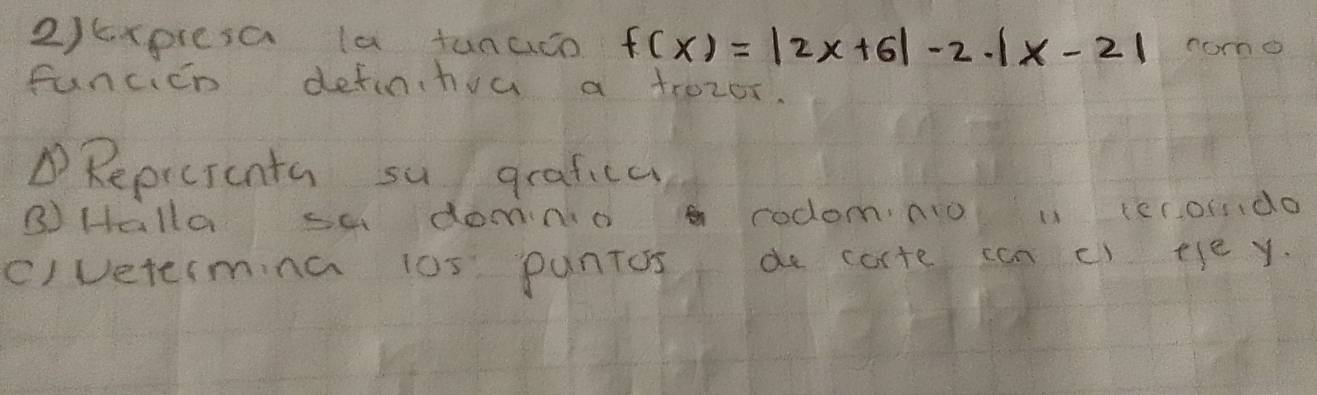 2) Expresa la función f(x) = |2x+6| - 2 . |x - 2| como
función definitiva a trozos.
A) Representa su grafica
B) Halla su dominio codominio u recorrido
C) Determina los puntos de corte con el eje y.